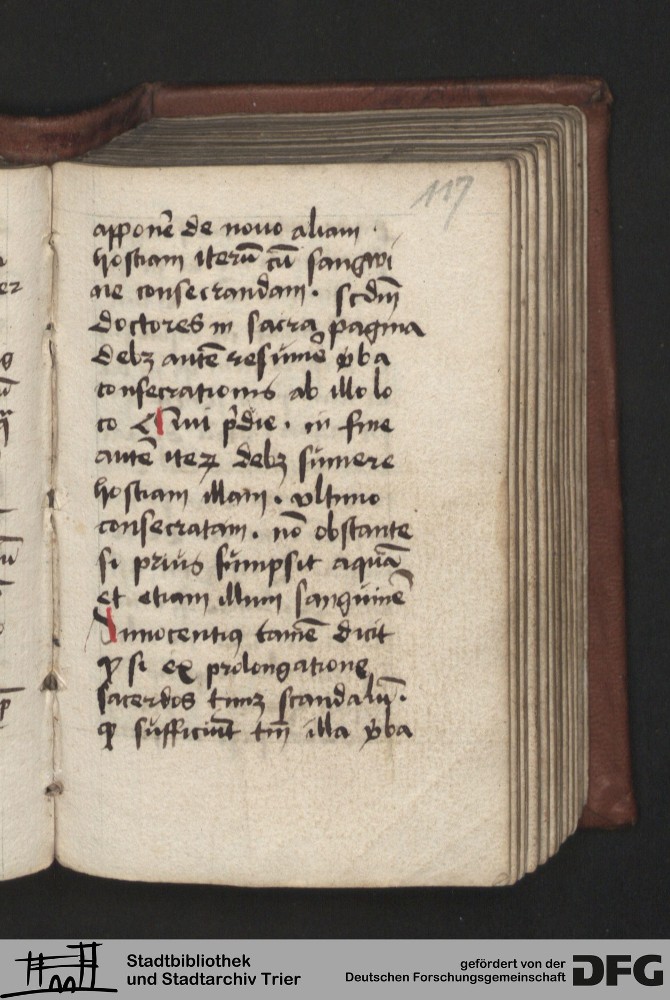 117
apponẽ de nouo aliam ·
hostiam iterũ cũ sangwi
ne consecrandam · scdm̃
doctores in sacra pagina
debꝫ autẽ resumẽ v̾ba
consecrationis ab illo lo
co Qui p̾die · in fine
autẽ iteꝝ debꝫ sumere
hostiam illam · vltimo
consecratam · nõ obstante
si prius sumpsit aquã
et etiam illum sanguinẽ
Innocentiꝰ tamẽ dicit
ꝙ si ex prolongatione
sacerdos timꝫ scandalũ ·
ꝙ sufficiũt tm̃ illa v̾ba
Stadtbibliothek
und Stadtarchiv Trier
gefördert von der
Deutschen Forschungsgemeinschaft
DFG